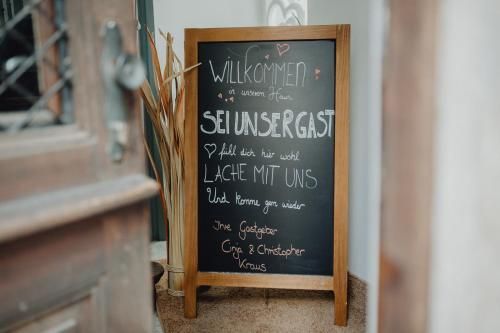 WILLKOMMEN
in unserem Haus
SEI UNSER GAST
fühl dich hier wohl
LACHE MIT UNS
Und komme gern wieder
Ihre Gastgeber
Cinja & Christopher
Kraus